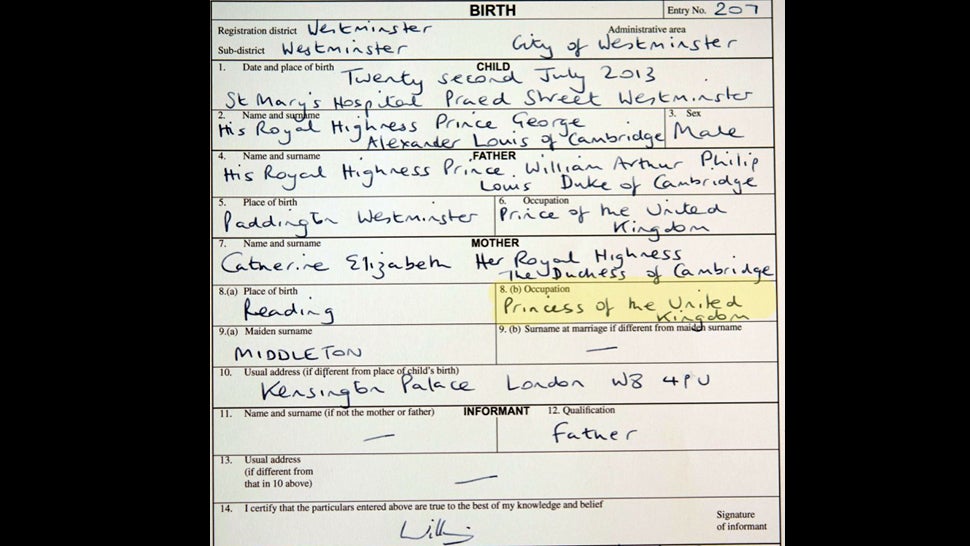 BIRTH
Entry No. 207
Registration district Westminster
Administrative area
Sub-district Westminster
City of Westminster
1. Date and place of birth
CHILD
Twenty second July 2013
St Mary's Hospital Praed Street Westminster
2. Name and surname
His Royal Highness Prince George
Alexander Louis of Cambridge
3. Sex
Male
4. Name and surname
FATHER
His Royal Highness Prince William Arthur Philip
Louis Duke of Cambridge
5. Place of birth
Paddington Westminster
6. Occupation
Prince of the United
Kingdom
7. Name and surname
MOTHER
Catherine Elizabeth Her Royal Highness
The Duchess of Cambridge
8.(a) Place of birth
Reading
8. (b) Occupation
Princess of the United
Kingdom
9.(a) Maiden surname
MIDDLETON
9. (b) Surname at marriage if different from maiden surname
—
10. Usual address (if different from place of child's birth)
Kensington Palace London W8 4PU
11. Name and surname (if not the mother or father)
INFORMANT
—
12. Qualification
Father
13. Usual address
(if different from
that in 10 above)
—
14. I certify that the particulars entered above are true to the best of my knowledge and belief
Signature
of informant